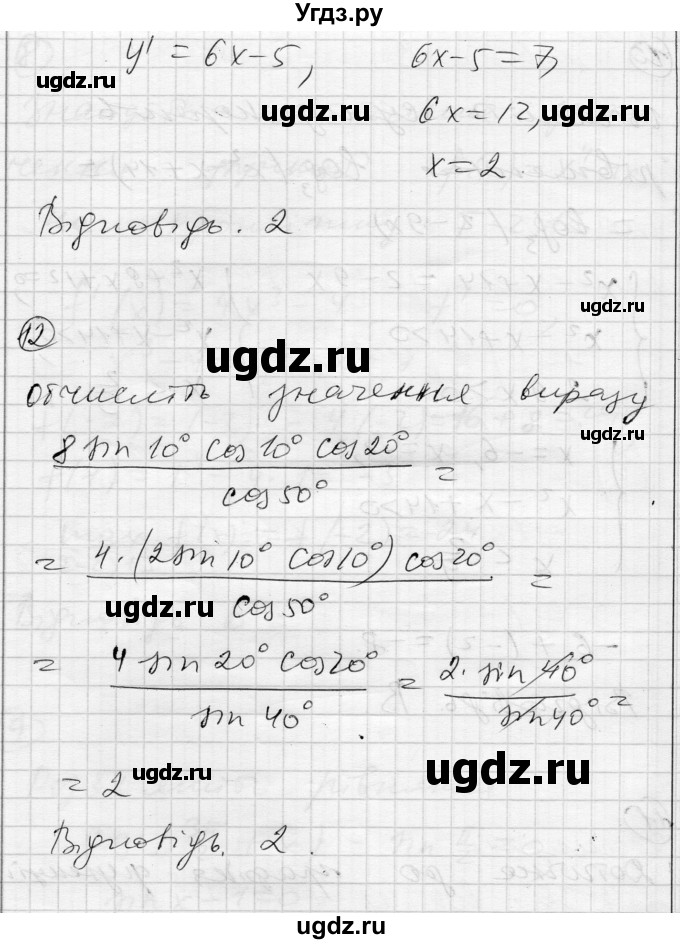 Угдз.ру
y' = 6x-5, 6x-5=7,
ugdz.ru ugdz.ru
6x=12,
x=2.
Відповідь. 2
ugdz.ru
12
ugdz.ru
Обчисліть значення виразу
ugdz.ru
8 sin 10° cos 10° cos 20° / cos 50° =
= 4·(2 sin 10° cos 10°) cos 20° / cos 50° =
ugdz.ru ugdz.ru
= 4 sin 20° cos 20° / sin 40° = 2·sin 40° / sin 40° =
= 2
ugdz.ru ugdz.ru
Відповідь. 2.
ugdz.ru
ugdz.ru